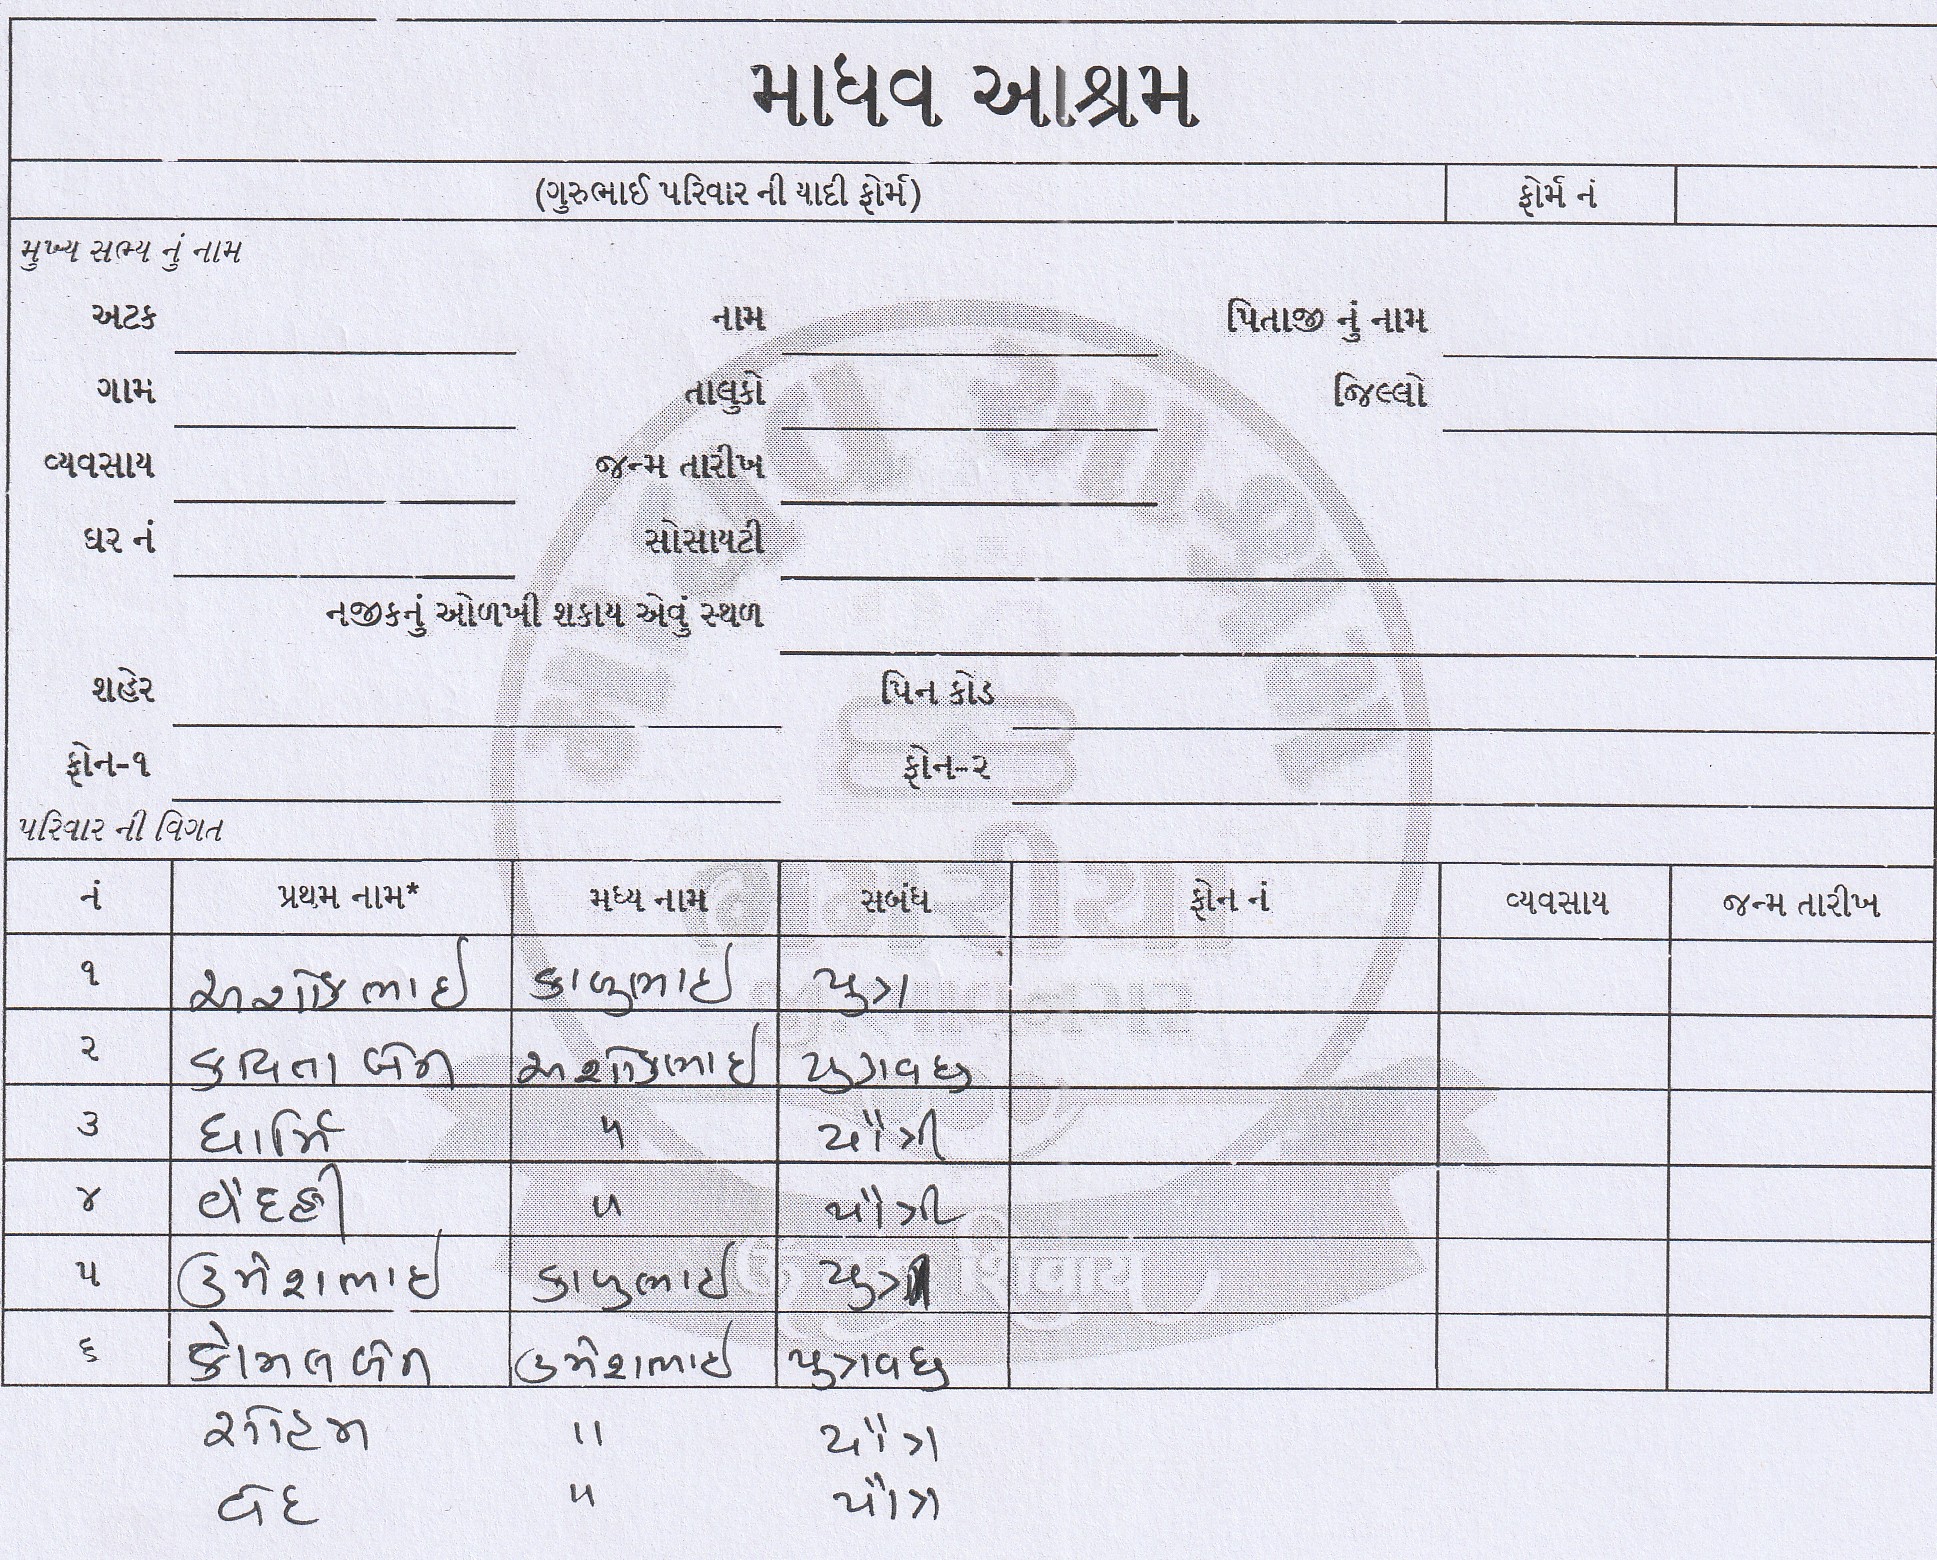 માધવ આશ્રમ
(ગુરુભાઈ પરિવાર ની યાદી ફોર્મ) ફોર્મ નં
મુખ્ય સભ્ય નું નામ
અટક નામ પિતાજી નું નામ
ગામ તાલુકો જિલ્લો
વ્યવસાય જન્મ તારીખ
ઘર નં સોસાયટી
નજીકનું ઓળખી શકાય એવું સ્થળ
શહેર પિન કોડ
ફોન-૧ ફોન-૨
પરિવાર ની વિગત
નં પ્રથમ નામ* મધ્ય નામ સબંધ ફોન નં વ્યવસાય જન્મ તારીખ
૧ અશોકભાઈ કાળુભાઈ પુત્ર
૨ કવિતાબેન અશોકભાઈ પુત્રવધુ
૩ ધાર્મિ " પૌત્રી
૪ વૈદહી " પૌત્રી
૫ ઉમેશભાઈ કાળુભાઈ પુત્ર
૬ કોમલબેન ઉમેશભાઈ પુત્રવધુ
સોહમ " પૌત્ર
વેદ " પૌત્ર